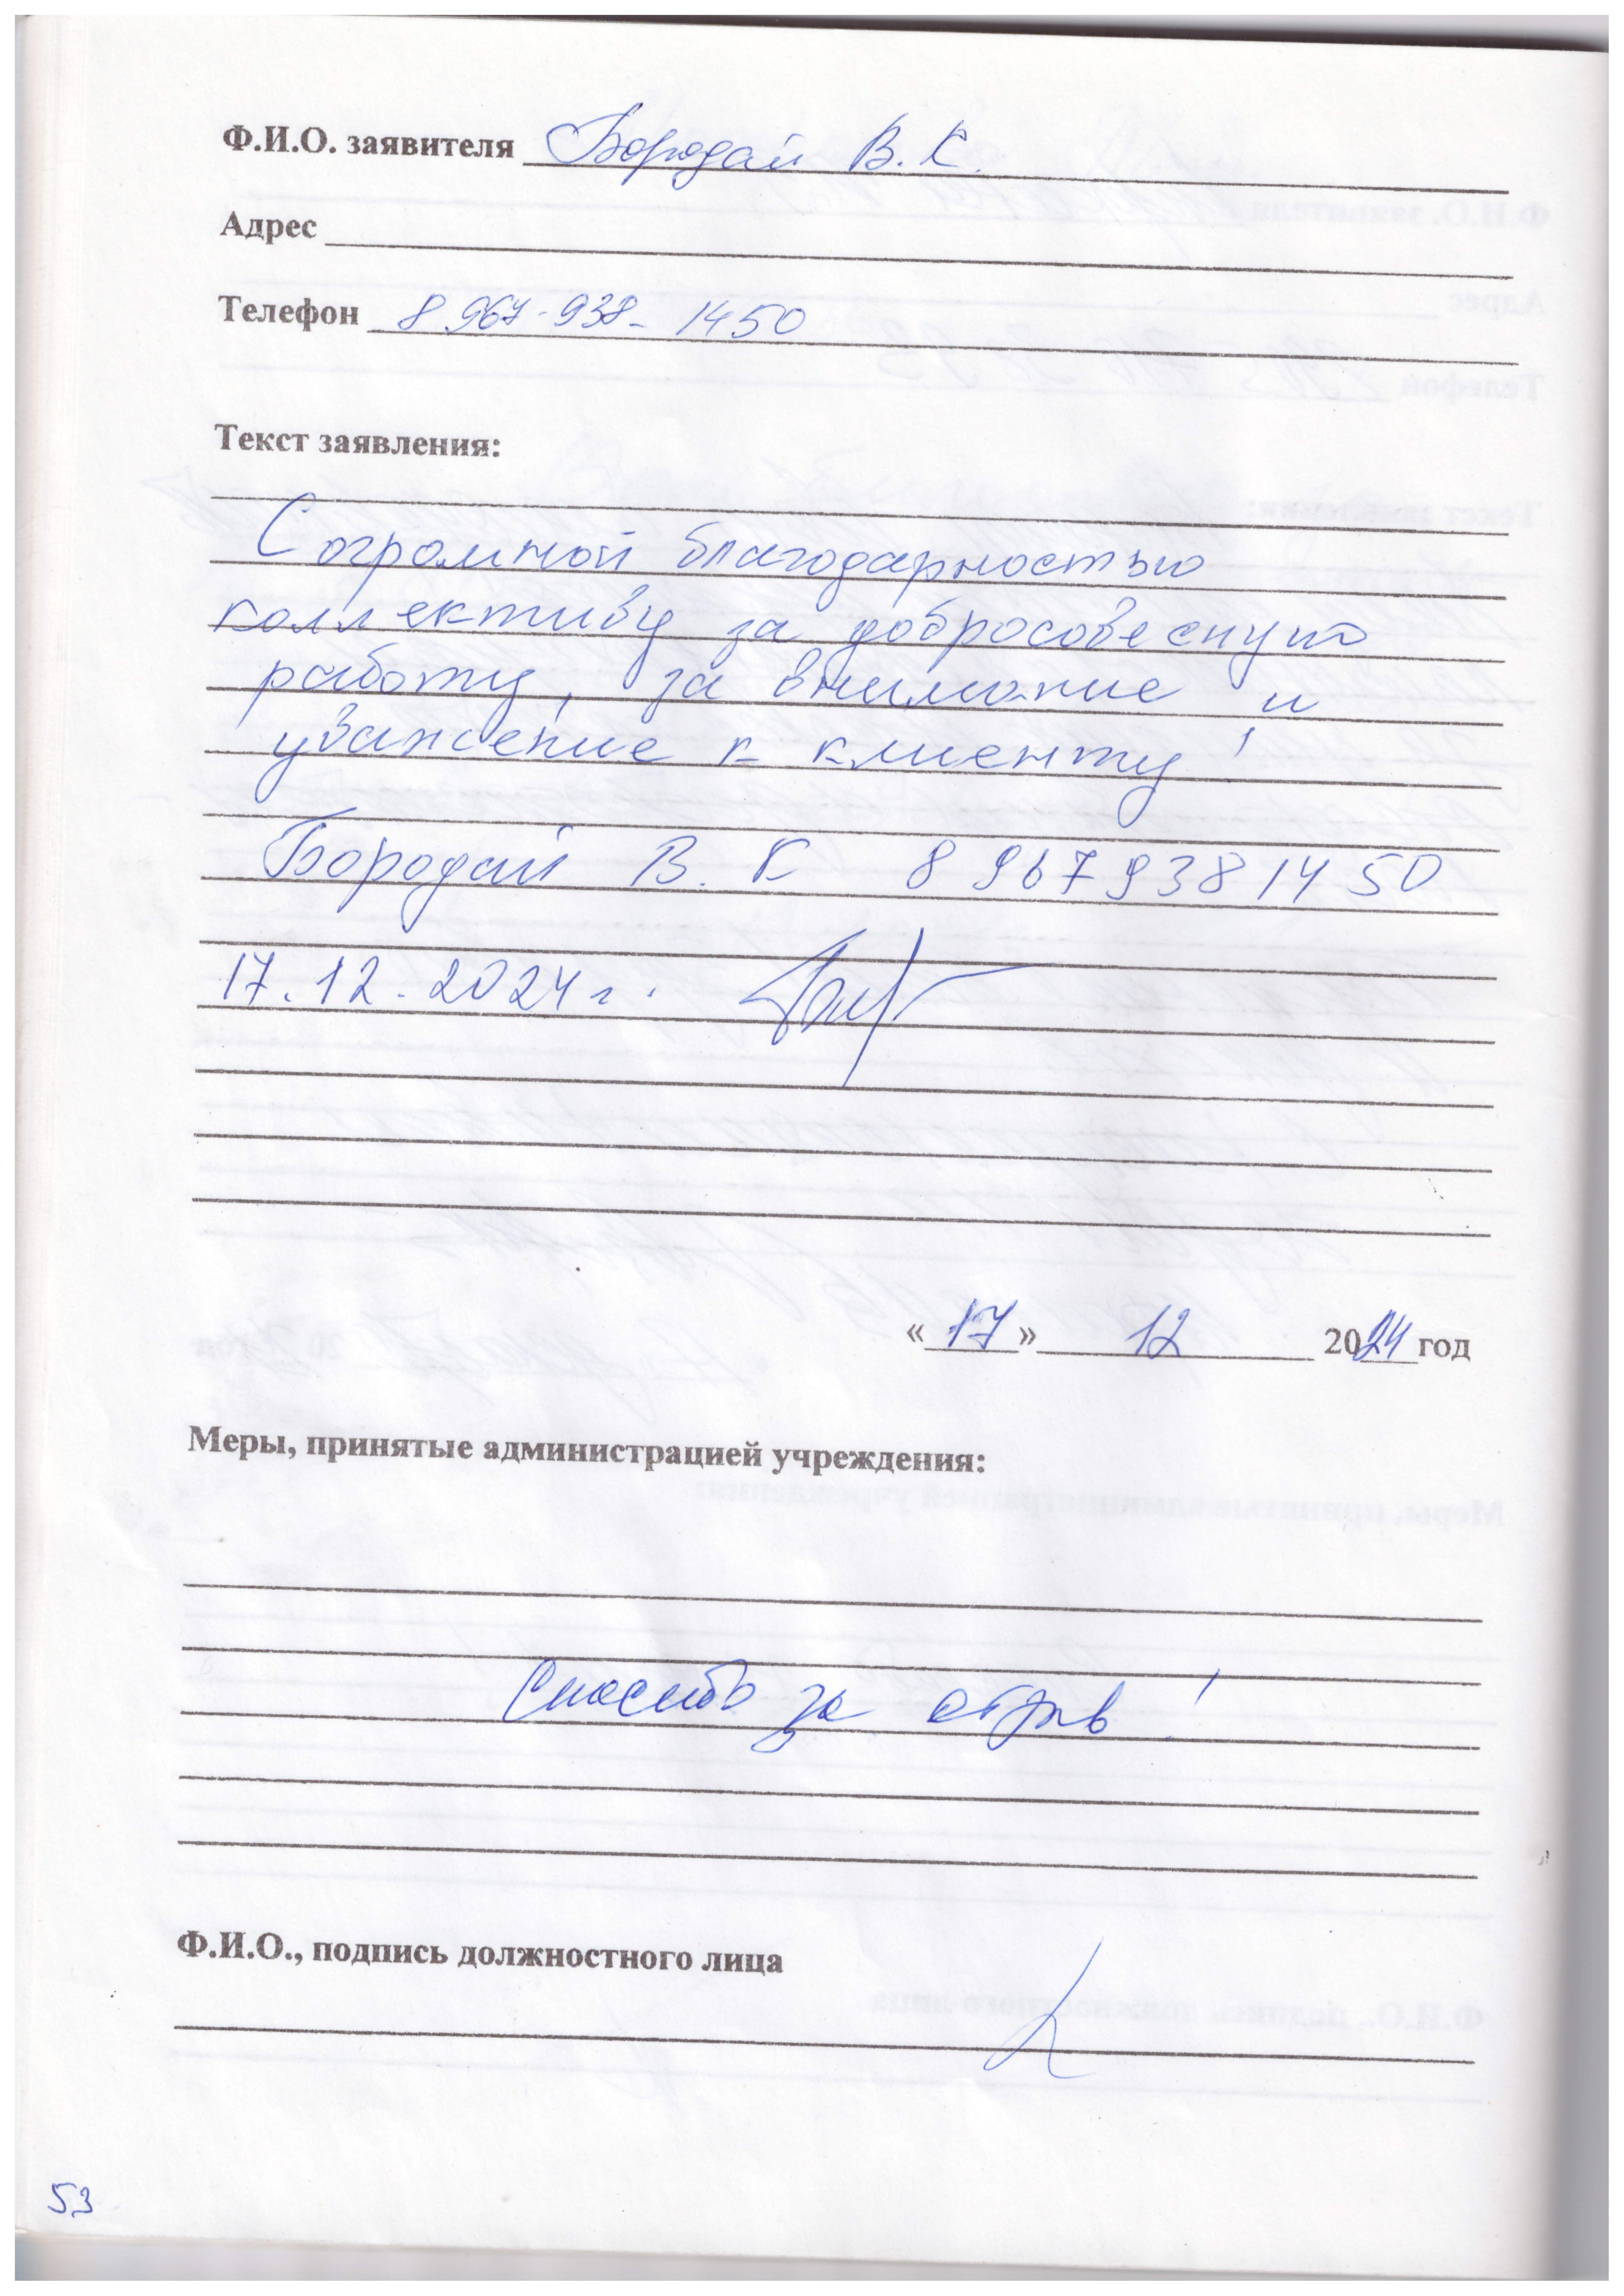 Ф.И.О. заявителя Бородай В. К.
Адрес
Телефон 8 967-938-1450
Текст заявления:
С огромной благодарностью
коллективу за добросовесную
работу, за внимание и
уважение к клиенту!
Бородай В. К 8 967 938 14 50
17.12.2024 г.
«17» 12 2024 год
Меры, принятые администрацией учреждения:
Спасибо за отзыв!
Ф.И.О., подпись должностного лица
53